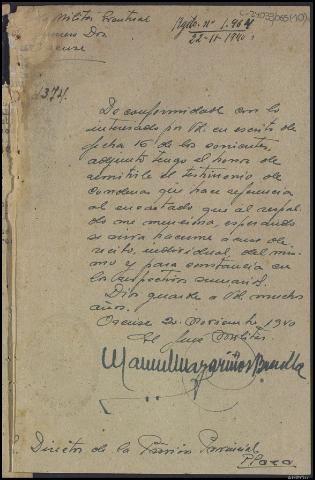 C-24033(065)(10)
Militar Eventual
Rgtro. nº 1.964
22-11-1940
Orense
1374.
De conformidad con lo
interesado por Vd. en escrito de
fecha 16 de los corrientes
adjunto tengo el honor de
remitirle el testimonio de
condenas que hace referencia
al encartado que al respal-
do me menciona, esperando
se sirva hacerme acuse de
recibo, individual, del mis-
mo y para constancia en
los respectivos sumarios.
Dios guarde a Vd. muchos
años.
Orense 20 Noviembre 1940
El Juez Militar
Manuel Mazariños
Director de la Prisión Provincial
Plaza